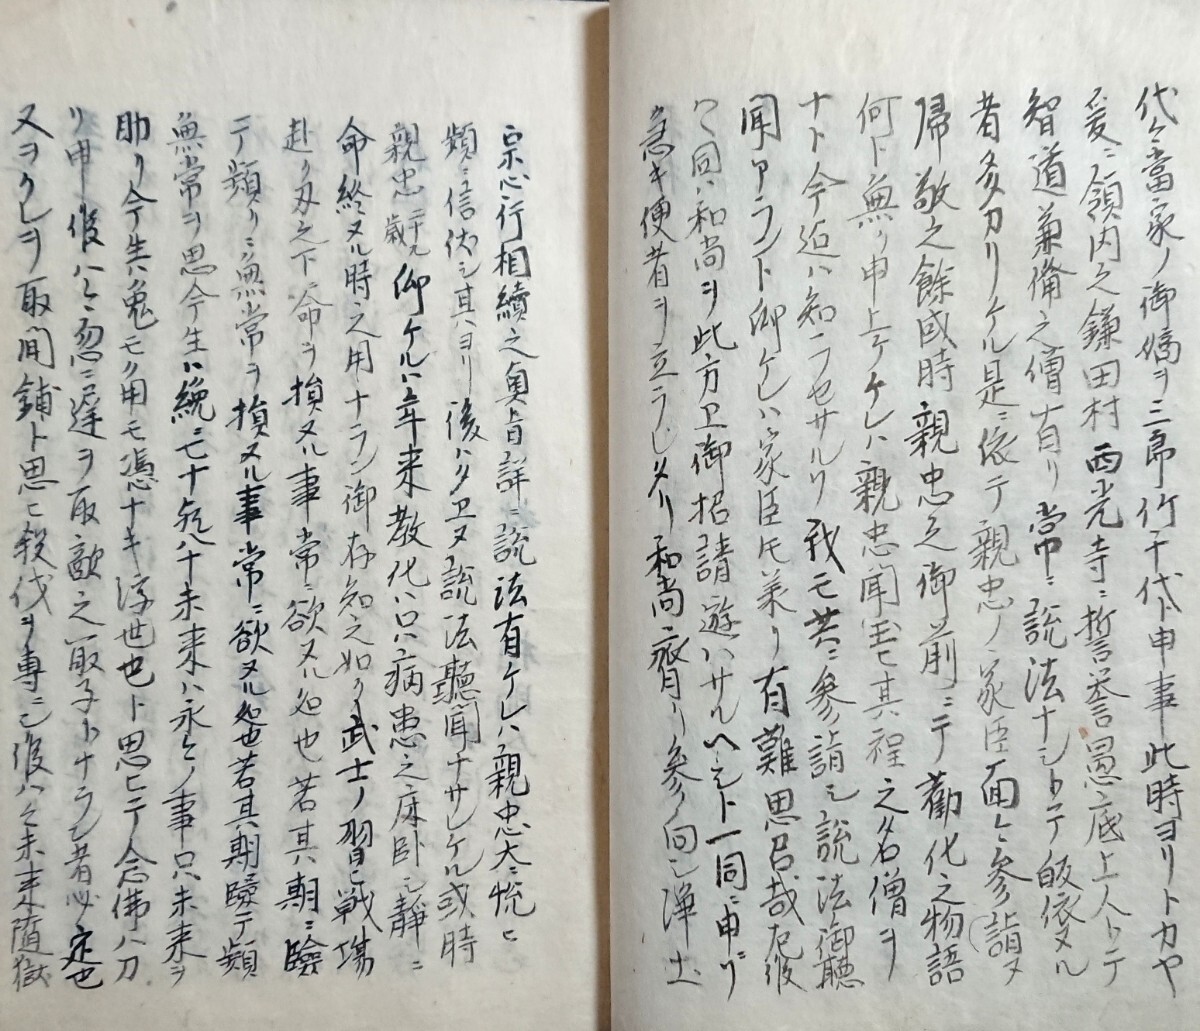 代々當家ノ御嫡ヲ三郎竹千代ト申事此時ヨリトカヤ
爰ニ領内之鎌田村西光寺ニ誓誉愚底上人トテ
智道兼備之僧有リ常ニ説法ナシトテ皈依スル
者多カリケル是ニ依テ親忠ノ家臣面々参詣ス
帰敬之餘或時親忠之御前ニテ勧化之物語
何ト無ク申上ケレハ親忠聞玉ヒ其程之名僧ヲ
ナト今迠ハ知ラセサルソ我モ共ニ参詣シ説法御聴
聞アラント仰ケレハ家臣氏兼リ有難思召哉左様
ニ同ハ和尚ヲ此方ヱ御招請遊ハサルヘシト一同ニ申ニリ
急キ使者ヲ立ラレタリ和尚ニ齊リ参ノ向シ浄土
宗心行相續之奥旨詳ニ説法有ケレハ親忠大ニ悦ヒ
頻ニ信伏シ其ヨリ後ハタヱス説法聴聞ナサレケル或時
親忠 仰ケルハ年来教化ハ只病患之床卧シ静ニ
命終スル時之用ナラン御存知之如ク武士ノ習ヒ戦場
赴ク刃之下ニ命ヲ損スル事常ニ欲スル処也若其期ニ臨
テ頻リニ無常ヲ損スル事常ニ欲スル処也若其期臨テ頻
無常ヲ思今生ハ纔ニ七十既八十未来ハ永々ノ事只未来ヲ
助リ今生ハ兎モ角モ憑ナキ浮世也ト思ヒテ念佛ハ刀
リ申リ候ハヽ忽ニ遅ヲ取敵之取子トナラン者必定也
又ヲクレヲ取間鋪ト思ヒ殺伐ヲ専ニシ候ハヽ未来随獄